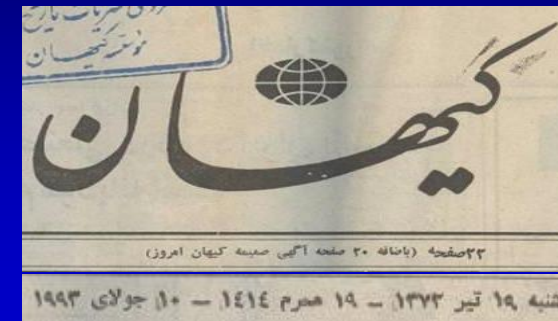 نشریات
موسسه کیهان
کیهان
۲۲صفحه (باضافه ۲۰ صفحه آگهی ضمیمه کیهان امروز)
شنبه ۱۹ تیر ۱۳۷۲ ــ ۱۹ محرم ۱۴۱۴ ــ ۱۰ جولای ۱۹۹۳